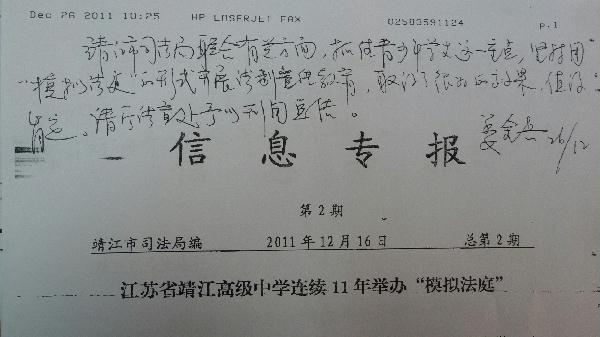 Dec 26 2011 10:25 HP LASERJET FAX 02583591124 p.1
靖江市司法局联合有关方面，抓住青少年学生这一重点，坚持用
“模拟法庭”的形式开展法制宣传教育，取得了很好的效果，值得
肯定。请厅法宣处予以刊简宣传。
26/12
信息专报
第2期
靖江市司法局编 2011年12月16日 总第2期
江苏省靖江高级中学连续11年举办“模拟法庭”